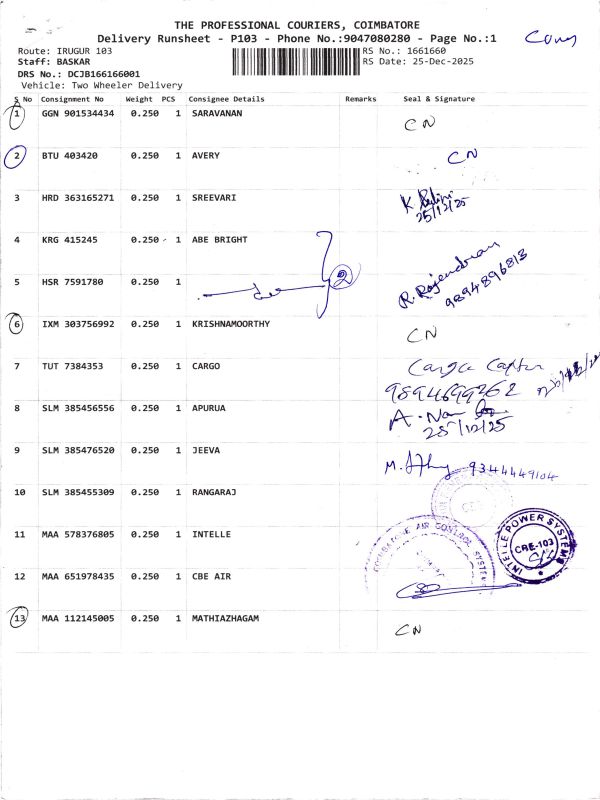 THE PROFESSIONAL COURIERS, COIMBATORE
Delivery Runsheet - P103 - Phone No.:9047080280 - Page No.:1
Route: IRUGUR 103
RS No.: 1661660
Staff: BASKAR
RS Date: 25-Dec-2025
DRS No.: DCJB166166001
Vehicle: Two Wheeler Delivery
S No Consignment No Weight PCS Consignee Details Remarks Seal & Signature
1 GGN 901534434 0.250 1 SARAVANAN CN
2 BTU 403420 0.250 1 AVERY CN
3 HRD 363165271 0.250 1 SREEVARI
25/12/25
4 KRG 415245 0.250 1 ABE BRIGHT
5 HSR 7591780 0.250 1 2 R. Rajendran
9894896813
6 IXM 303756992 0.250 1 KRISHNAMOORTHY CN
7 TUT 7384353 0.250 1 CARGO Cargo
9894699262
8 SLM 385456556 0.250 1 APURUA
25/12/25
9 SLM 385476520 0.250 1 JEEVA 9344449104
10 SLM 385455309 0.250 1 RANGARAJ
11 MAA 578376805 0.250 1 INTELLE INTELLE POWER SYSTEMS CBE-103
12 MAA 651978435 0.250 1 CBE AIR COIMBATORE AIR CONTROL SYSTEMS
13 MAA 112145005 0.250 1 MATHIAZHAGAM CN